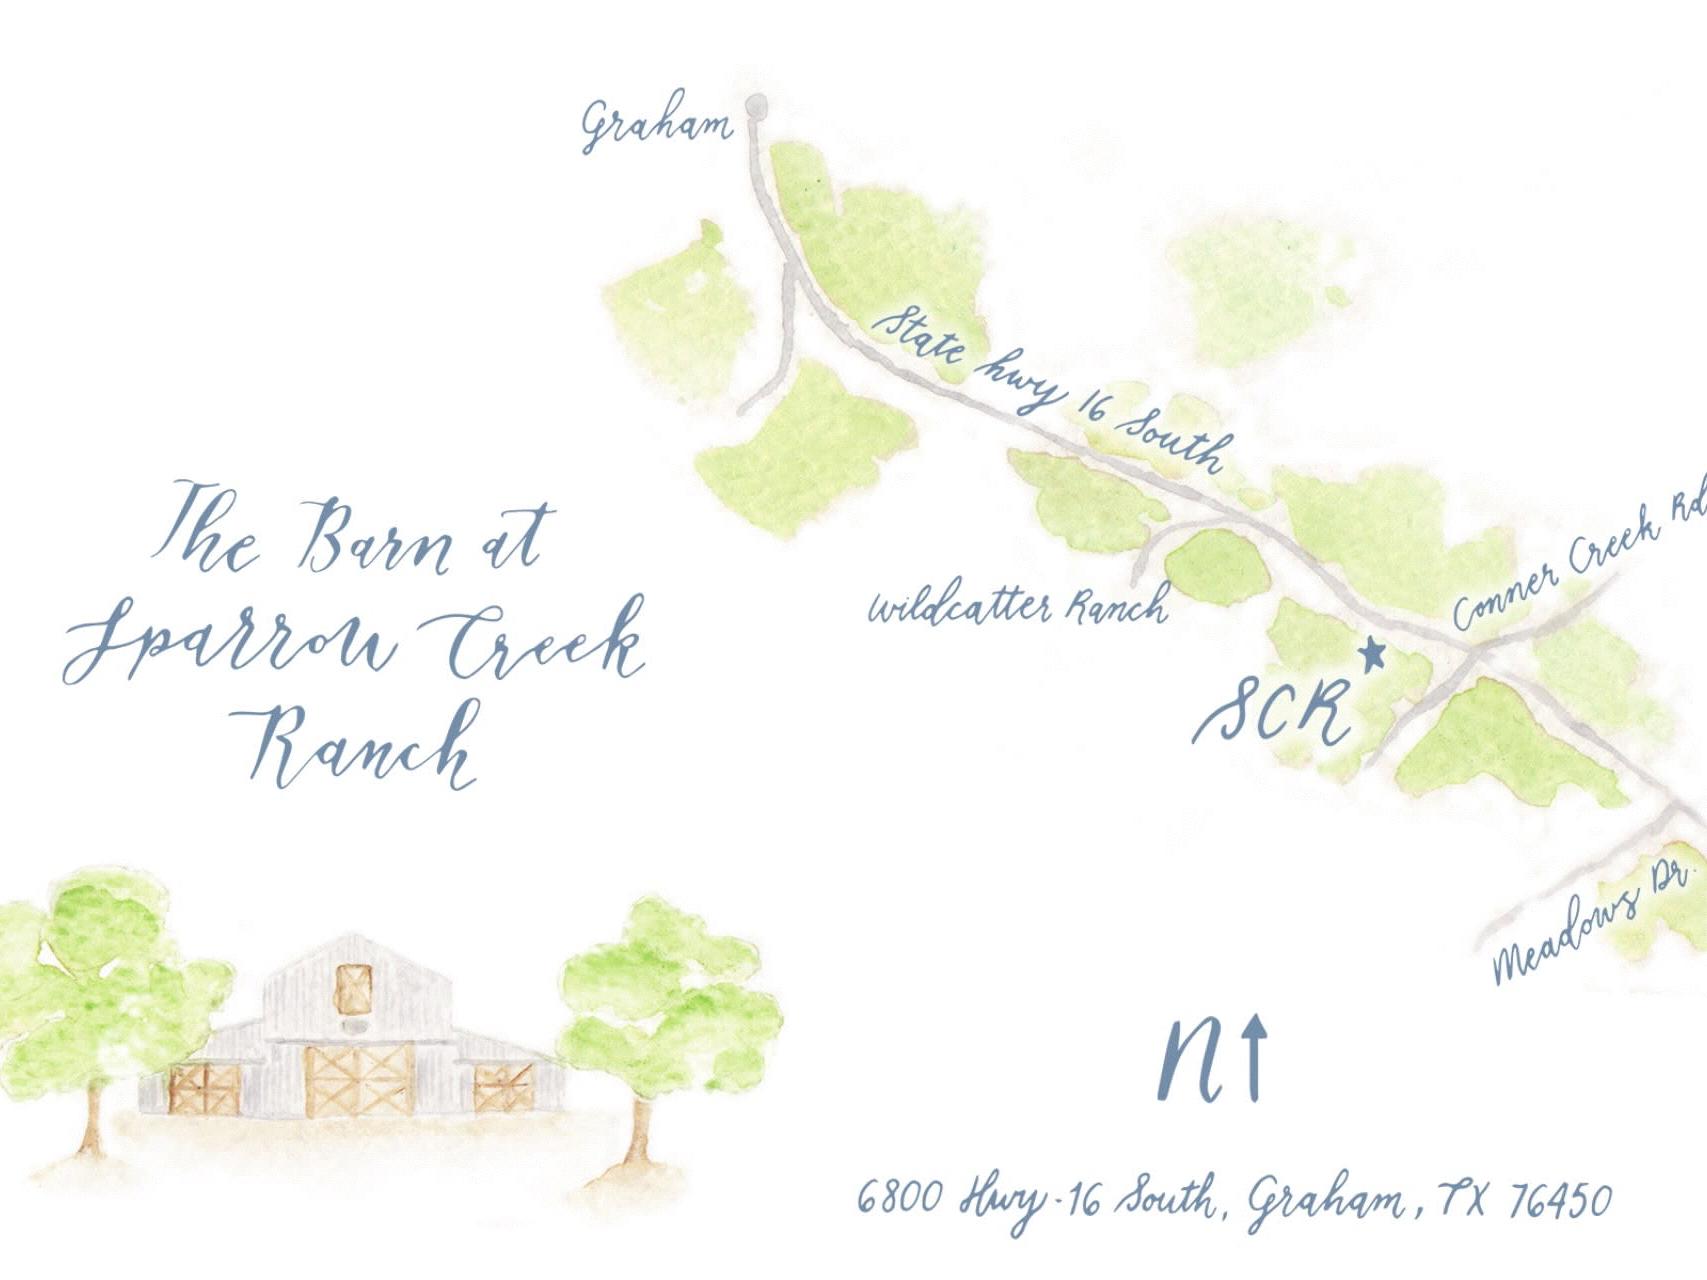 Graham
State hwy 16 South
Conner Creek Rd
The Barn at
Sparrow Creek
Ranch
Wildcatter Ranch
SCR
Meadows Dr.
N
6800 Hwy-16 South, Graham, TX 76450